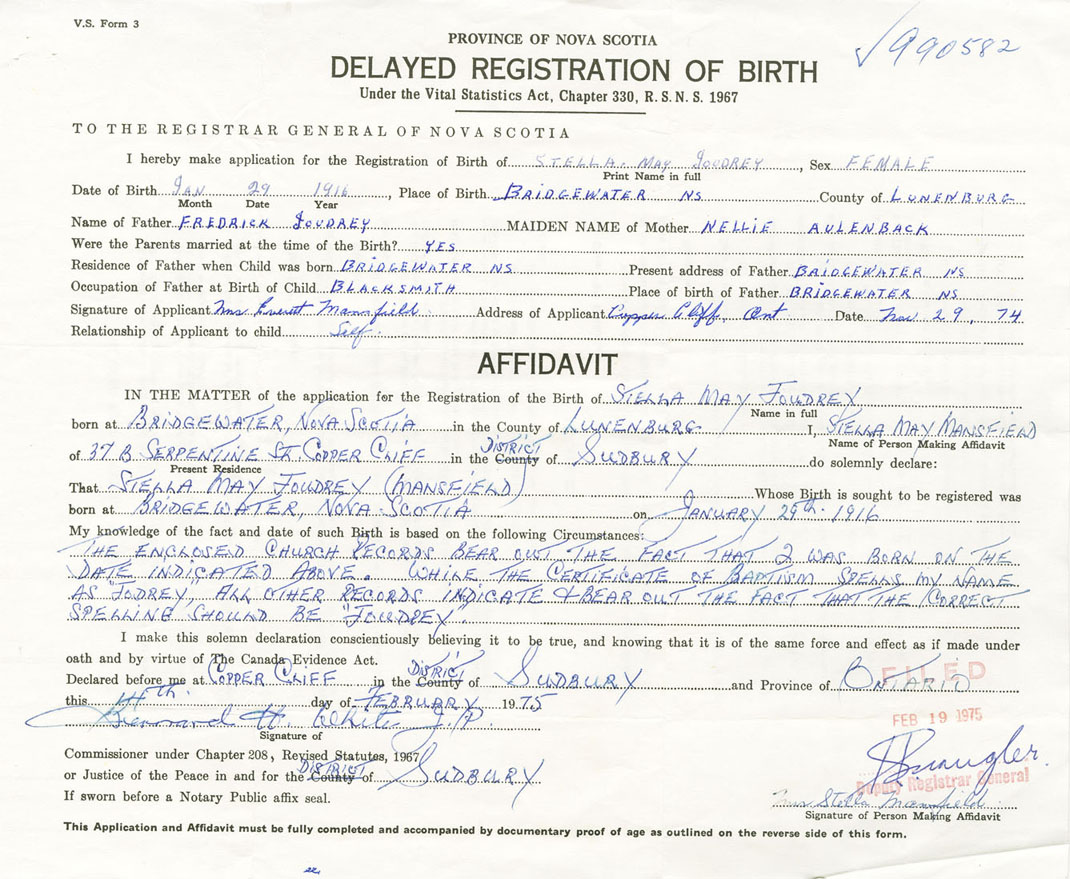 V.S. Form 3
√990582
PROVINCE OF NOVA SCOTIA
DELAYED REGISTRATION OF BIRTH
Under the Vital Statistics Act, Chapter 330, R.S.N.S. 1967
TO THE REGISTRAR GENERAL OF NOVA SCOTIA
I hereby make application for the Registration of Birth of STELLA MAY JOUDREY, Sex FEMALE
Print Name in full
Date of Birth JAN 29 1916, Place of Birth BRIDGEWATER NS County of LUNENBURG
Month Date Year
Name of Father FREDRICK JOUDREY MAIDEN NAME of Mother NELLIE AULENBACK
Were the Parents married at the time of the Birth? YES
Residence of Father when Child was born BRIDGEWATER NS Present address of Father BRIDGEWATER NS
Occupation of Father at Birth of Child BLACKSMITH Place of birth of Father BRIDGEWATER NS
Signature of Applicant Mrs Everett Mansfield Address of Applicant Copper Cliff, Ont Date Nov 29, 74
Relationship of Applicant to child Self
AFFIDAVIT
IN THE MATTER of the application for the Registration of the Birth of STELLA MAY JOUDREY
Name in full
born at BRIDGEWATER, NOVA SCOTIA in the County of LUNENBURG I, STELLA MAY MANSFIELD
Name of Person Making Affidavit
of 37 B SERPENTINE ST. COPPER CLIFF in the DISTRICT County of SUDBURY do solemnly declare:
Present Residence
That STELLA MAY JOUDREY (MANSFIELD) Whose Birth is sought to be registered was
born at BRIDGEWATER, NOVA SCOTIA on JANUARY 29th 1916
My knowledge of the fact and date of such Birth is based on the following Circumstances:
THE ENCLOSED CHURCH RECORDS BEAR OUT THE FACT THAT I WAS BORN ON THE
DATE INDICATED ABOVE. WHILE THE CERTIFICATE OF BAPTISM SPELLS MY NAME
AS JODREY, ALL OTHER RECORDS INDICATE & BEAR OUT THE FACT THAT THE CORRECT
SPELLING SHOULD BE "JOUDREY".
I make this solemn declaration conscientiously believing it to be true, and knowing that it is of the same force and effect as if made under
oath and by virtue of The Canada Evidence Act.
Declared before me at COPPER CLIFF in the DISTRICT County of SUDBURY and Province of ONTARIO
FILED
this 14th day of FEBRUARY 1975
FEB 19 1975
H. White J.P.
Signature of
Commissioner under Chapter 208, Revised Statutes, 1967
or Justice of the Peace in and for the DISTRICT County of SUDBURY
Deputy Registrar General
If sworn before a Notary Public affix seal.
Mrs Stella Mansfield
Signature of Person Making Affidavit
This Application and Affidavit must be fully completed and accompanied by documentary proof of age as outlined on the reverse side of this form.